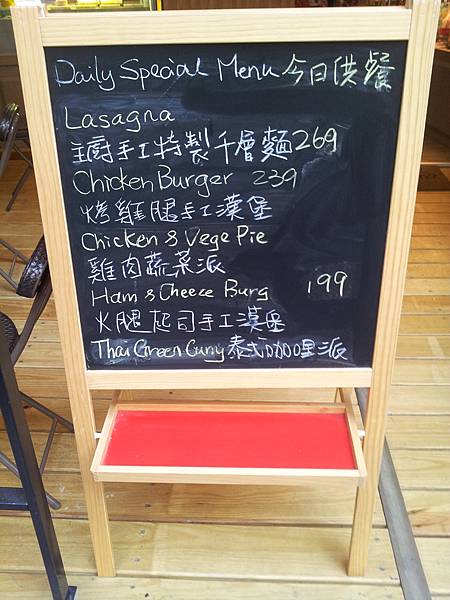 Daily Special Menu 今日供餐
Lasagna
主廚手工特製千層麵 269
Chicken Burger 239
烤雞腿手工漢堡
Chicken & Vege Pie
雞肉蔬菜派
Ham & Cheeze Burg 199
火腿起司手工漢堡
Thai Green Curry 泰式咖哩派